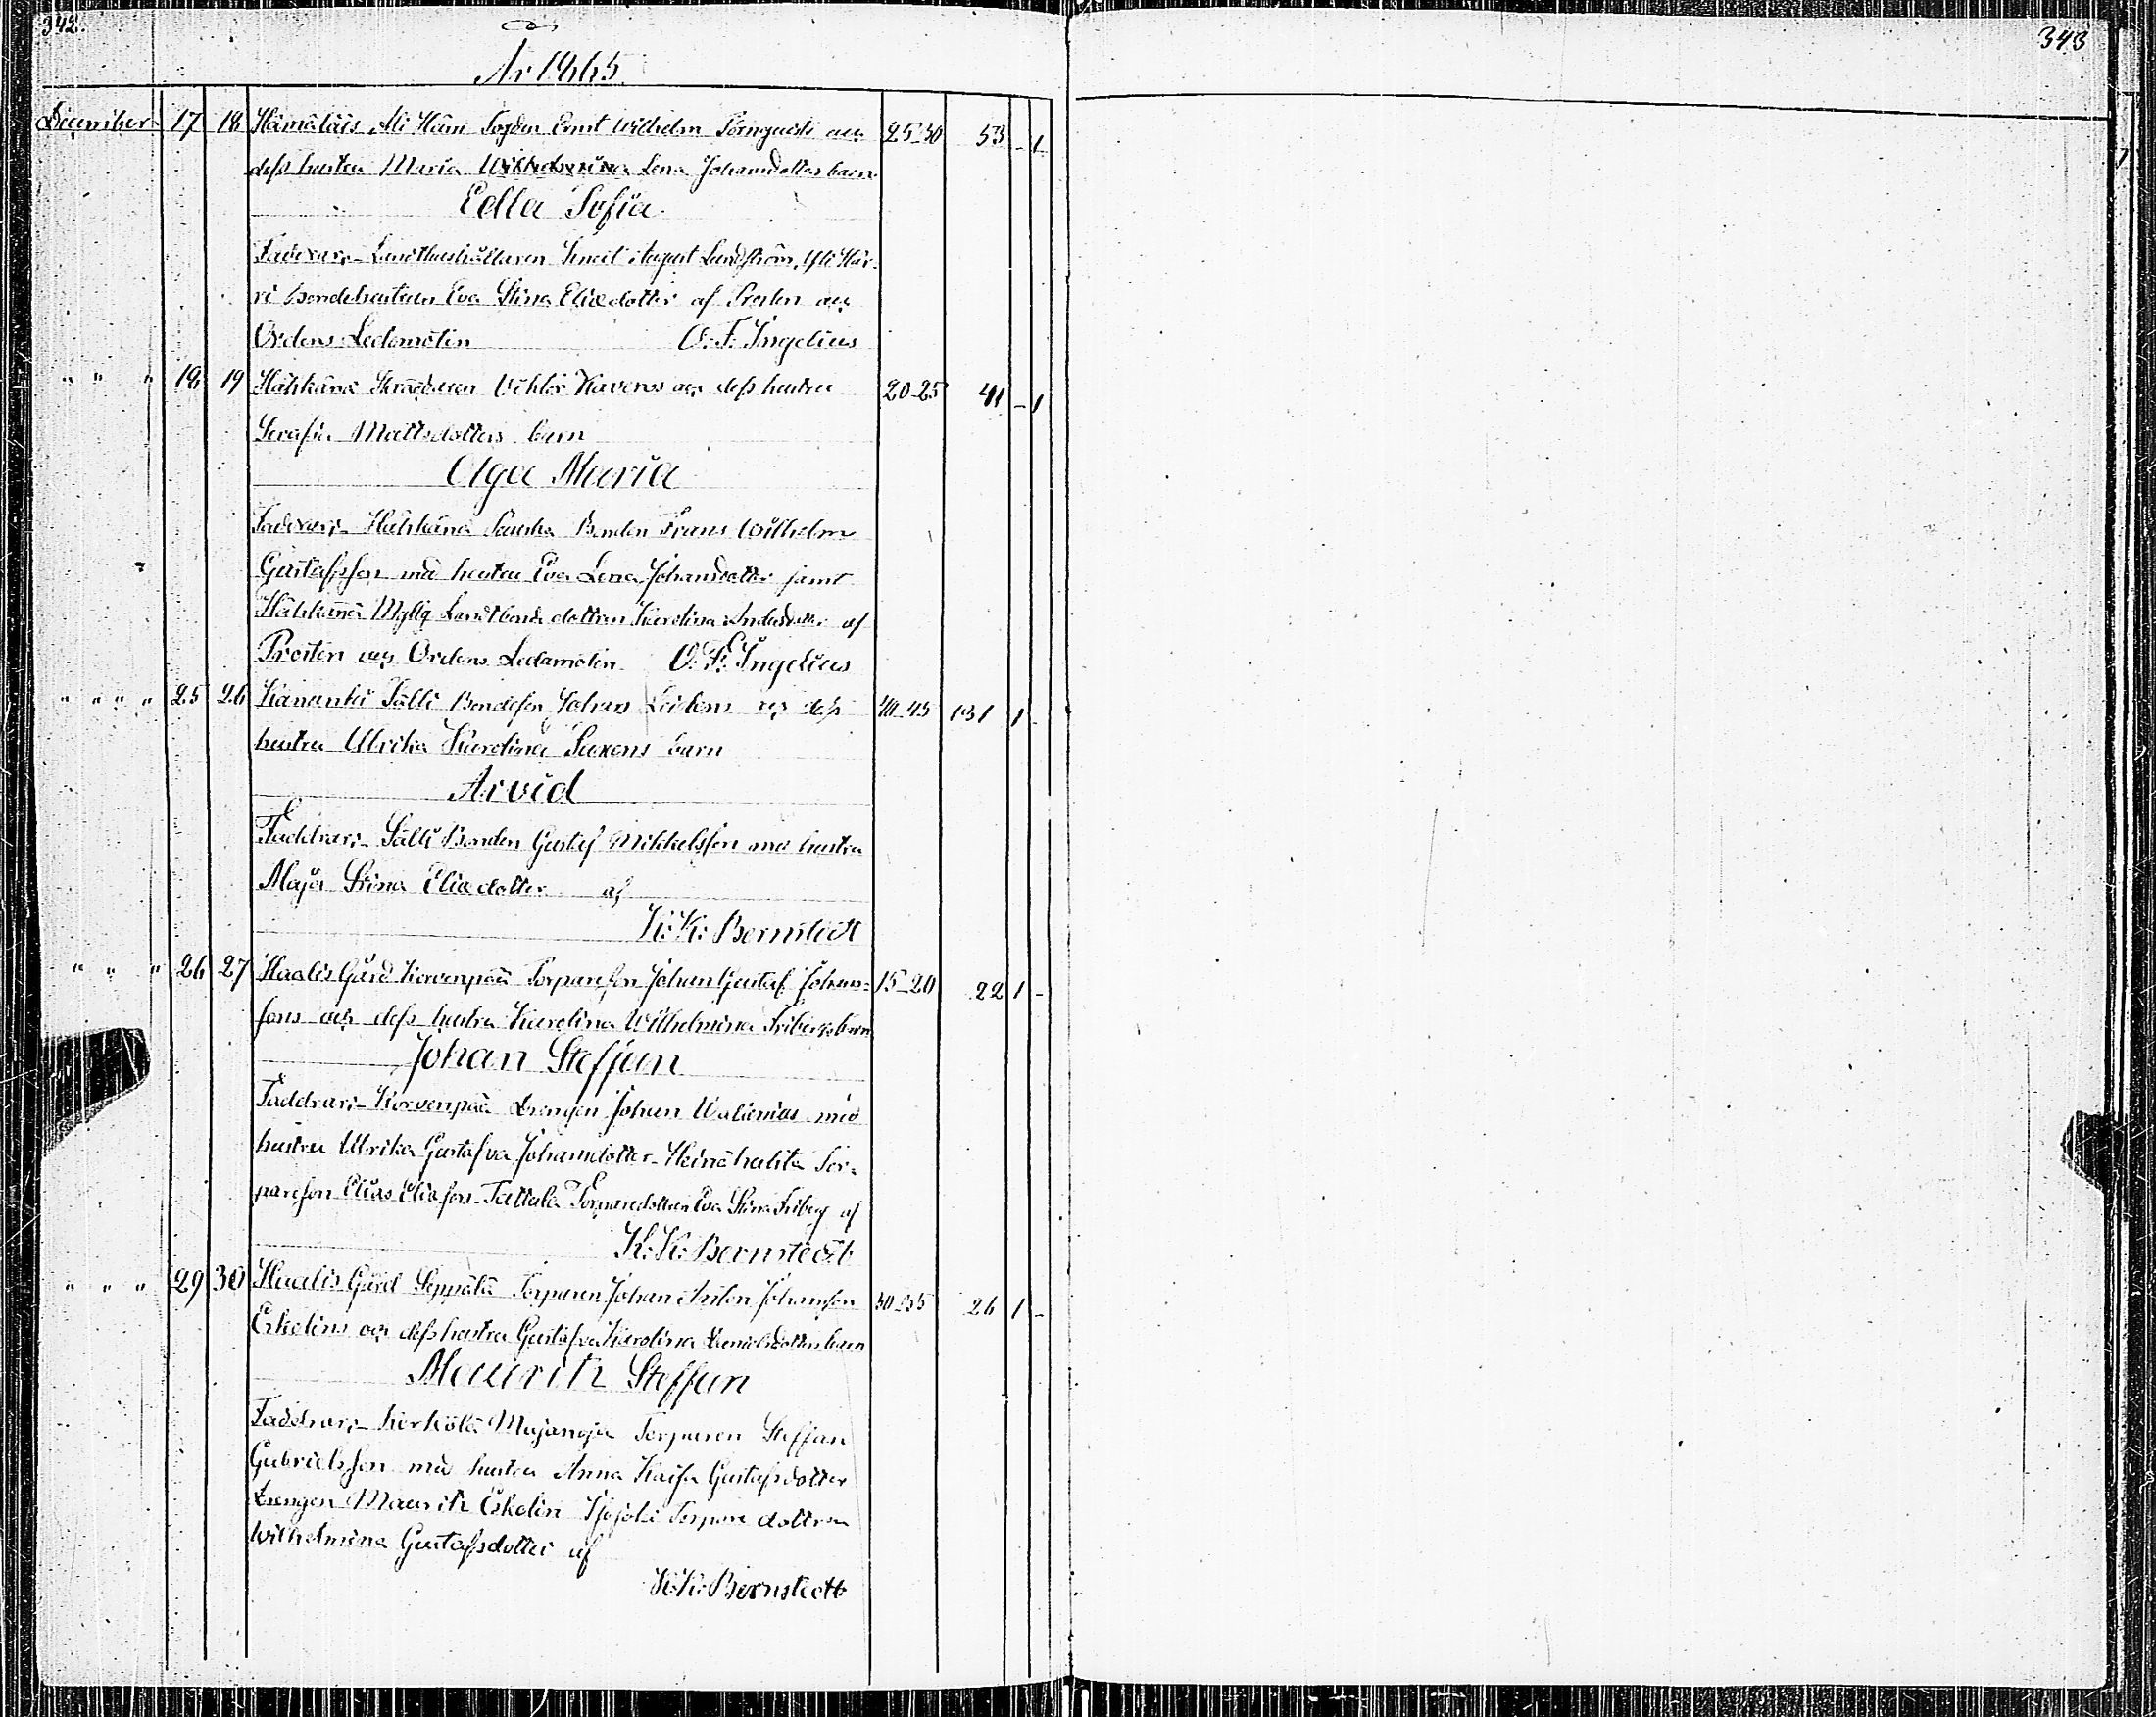 342.
343
År 1865.
December 17 18 Hämäläis Ali Häni Torpn Ernst Wilhelm Törnquists och 25-30 53 - 1
dess hustru Maria Lena Johansdotters barn
Edla Sofia
Faddrar: Landthushållaren Emeil August Lundström, Yli Här-
ri Bondehustrun Eva Stina Eliædotter af Prosten och
Ordens Ledamoten O. F. Ingelius
" " " 18 19 Hätikänä Skräddaren Viktor Kaveros och dess hustru 20-25 41 - 1
Serafia Mattsdotters barn
Olga Maria
Faddrar: Hätikänä Bonden Frans Wilhelm
Gustafsson med hustru Eva Lena Johansdotter samt
Mylly Landtbonde dottren Karolina af
Prosten och Ordens Ledamoten O. F. Ingelius
" " " " 25 26 Kanunki Sälli Bondeson Johan och dess 40-45 131 1 -
hustru Ulrika Karolina Saxens barn
Arvid
Faddrar: Sälli Bonden Gustaf Mikkelsson med hustru
Maja Stina Eliædotter af
K: K: Bernstedt
" " " 26 27 Haalis Gård Korvenpää Torpareson Johan Gustaf Johans- 15-20 22 1 -
sons och dess hustru Karolina Wilhelmina Fribergs barn
Johan Steffan
Faddrar: Korvenpää Drengen Johan Walenius med
hustru Ulrika Gustafva Johansdotter Heinähuhta Tor-
pareson Elias Eliasson Tattala Torparedottren Eva Stina Friberg af
K: K: Bernstedt
" " " 29 30 Haalis Gård Seppälä Torparen Johan Anton Johansson 30-35 26 1 -
Eskelins och dess hustru Gustafva Karolina Danielsdotters barn
Mauritz Steffan
Faddrar: Kerkölä Majanoja Torparen Steffan
Gabrielsson med hustru Anna Kaisa Gustafsdotter
Drengen Mauritz Eskelin Torpare dottren
Wilhelmina Gustafsdotter af
K: K: Bernstedt